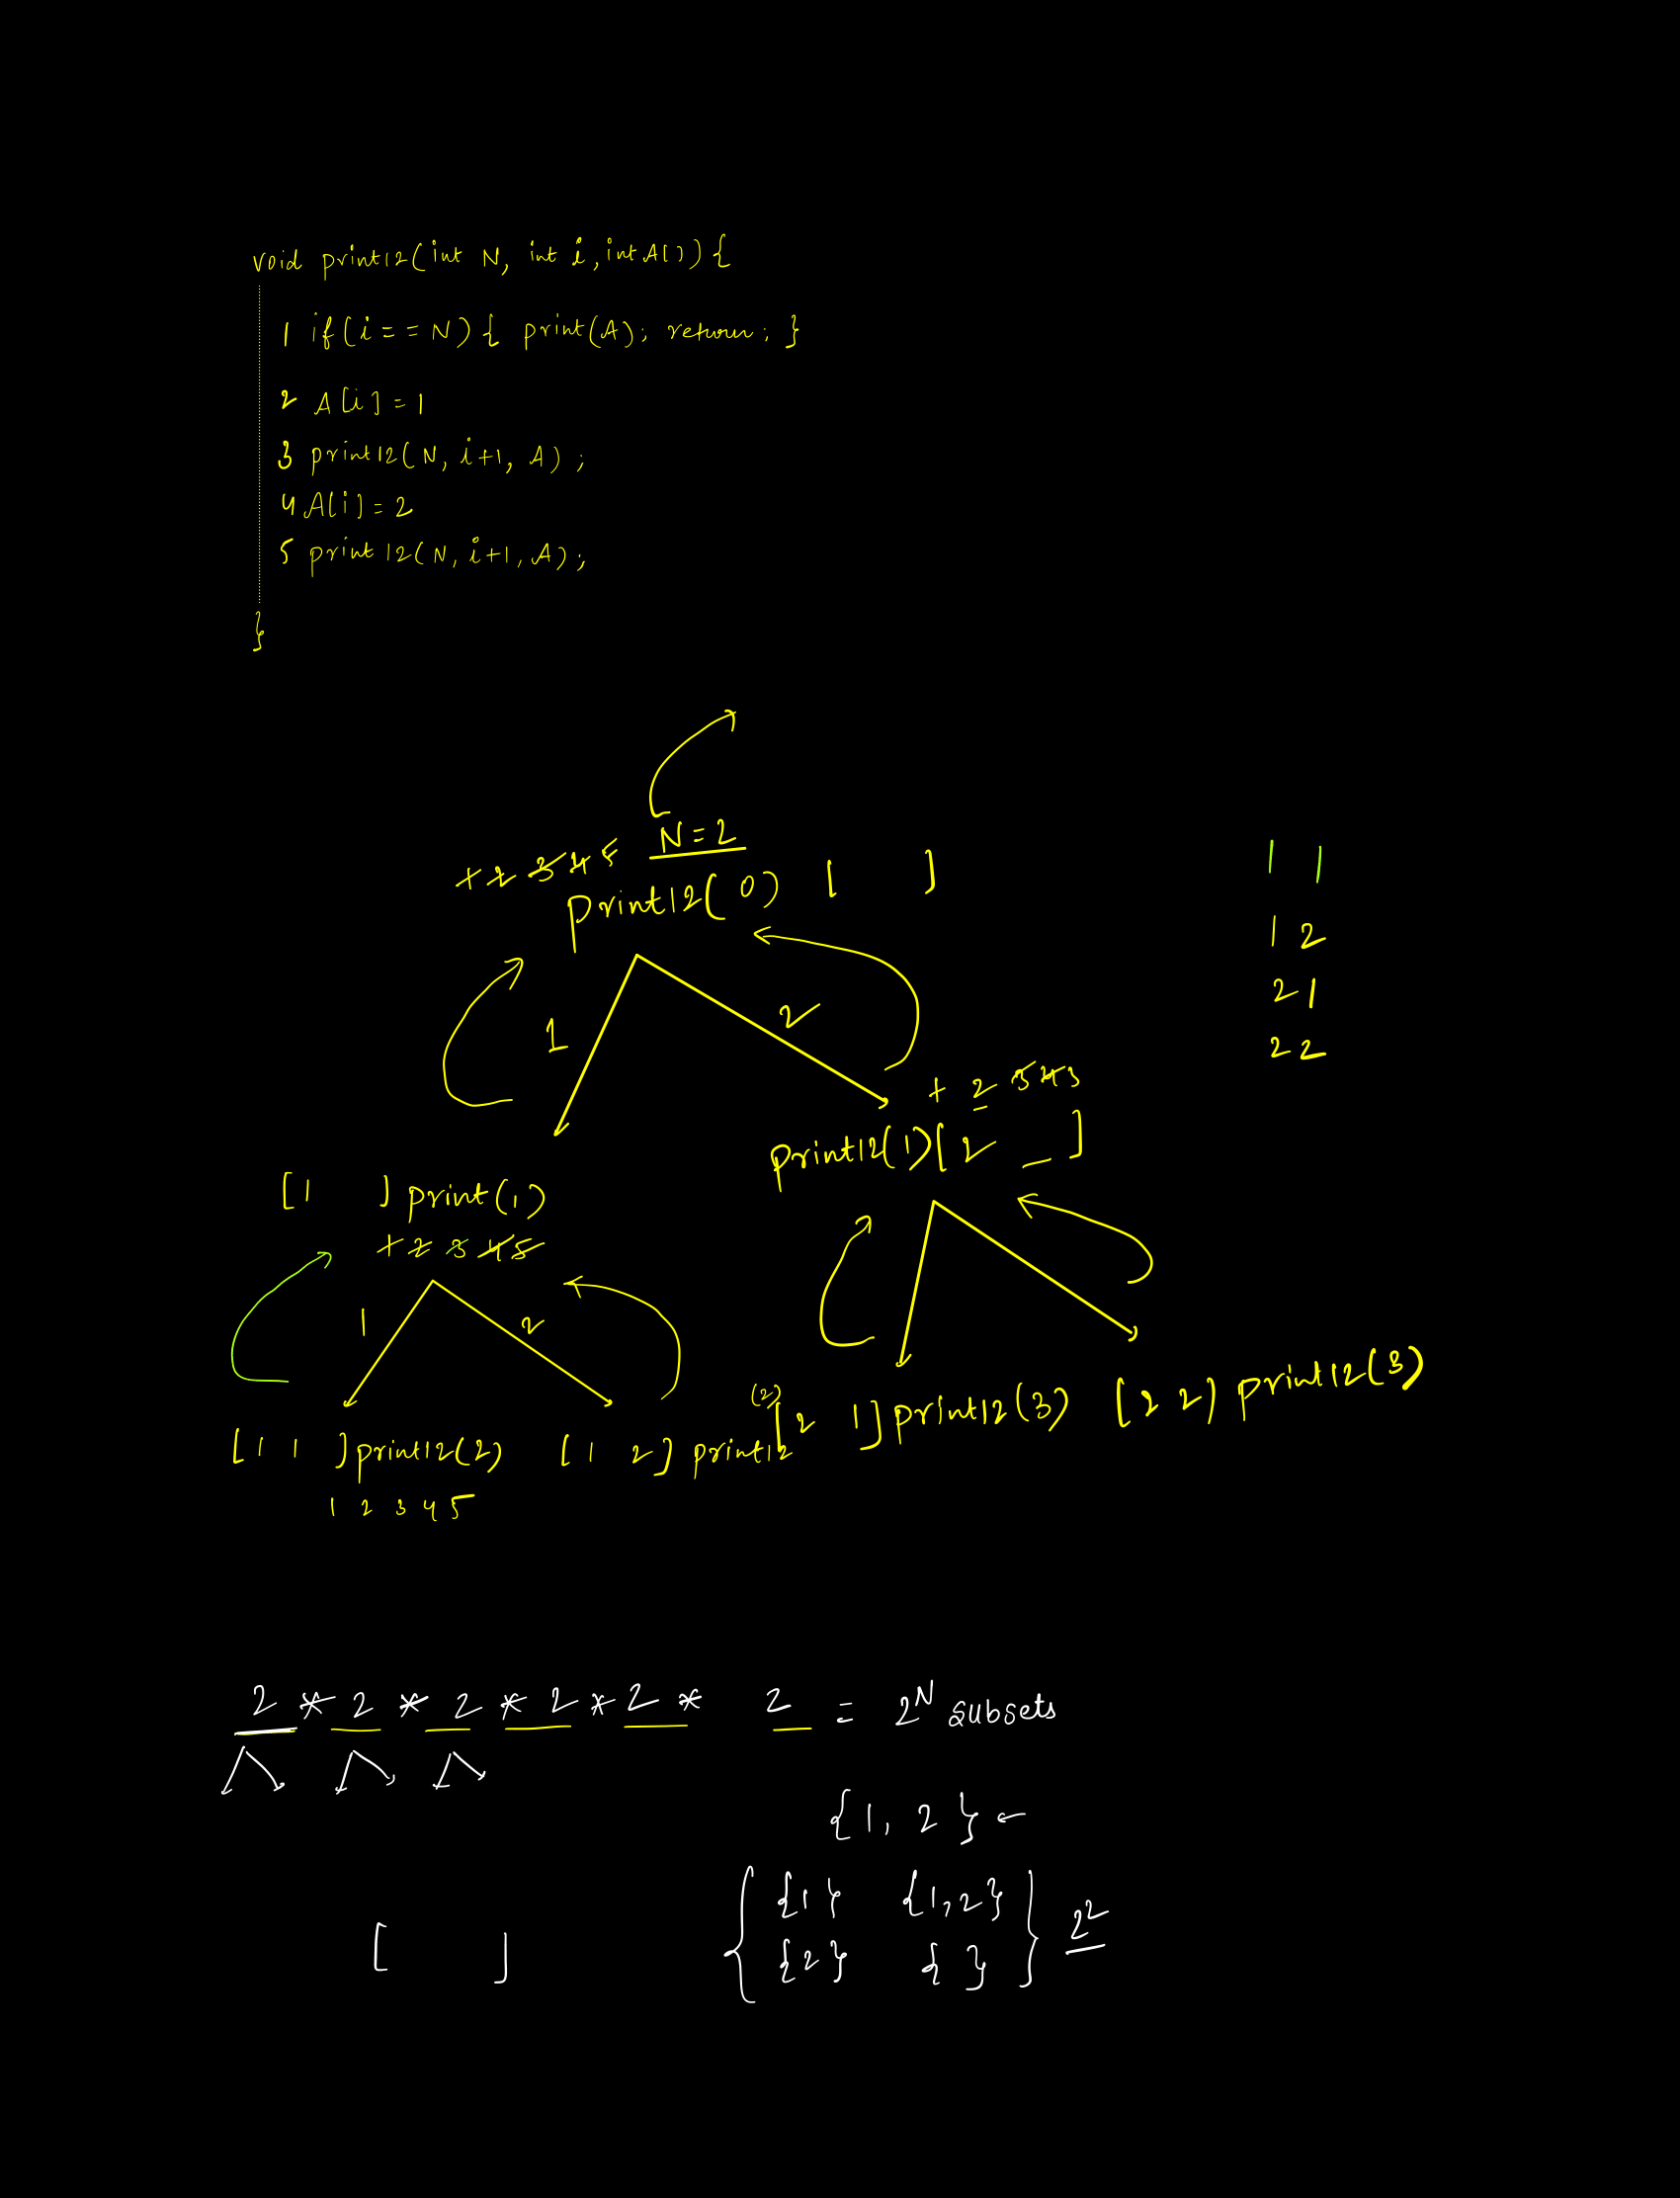 void print12(int N, int i, int A[]) {
1 if(i==N) { print(A); return; }
2 A[i]=1
3 print12(N, i+1, A);
4 A[i]=2
5 print12(N, i+1, A);
}
N=2
1 2 3 4 5
print12(0) [ ]
1 1
1 2
2 1
2 2
1 2
1 2 3 4 5
print12(1)[2 _ ]
[1 ] print(1)
1 2 3 4 5
1 2
[1 1 ] print12(2) [1 2] print12 (2) [2 1] print12(3) [2 2] print12(3)
1 2 3 4 5
2 * 2 * 2 * 2 * 2 * 2 = 2^N subsets
{1, 2} ←
{ {1} {1,2} } 2^2
{2} { }
[ ]